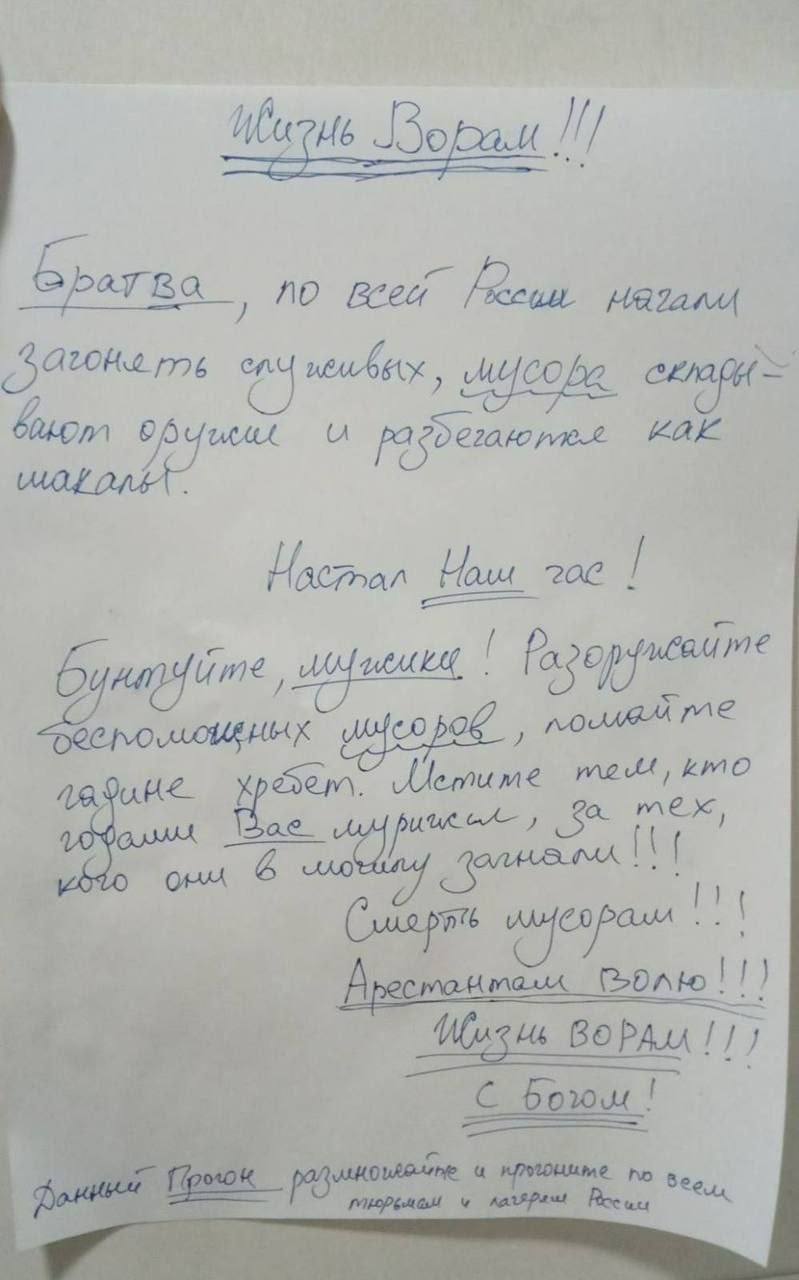 Жизнь Ворам!!!
Братва, по всей России начали
загонять служивых, мусора склады-
вают оружие и разбегаются как
шакалы.
Настал Наш час!
Бунтуйте, мужики! Разоружайте
беспомощных мусоров, ломайте
гадине хребет. Мстите тем, кто
годами Вас мурыжил, за тех,
кого они в могилу загнали!!!
Смерть мусорам!!!
Арестантам Волю!!!
Жизнь ВОРАМ!!!
С Богом!
Данный Прогон размножайте и прогоните по всем
тюрьмам и лагерям России